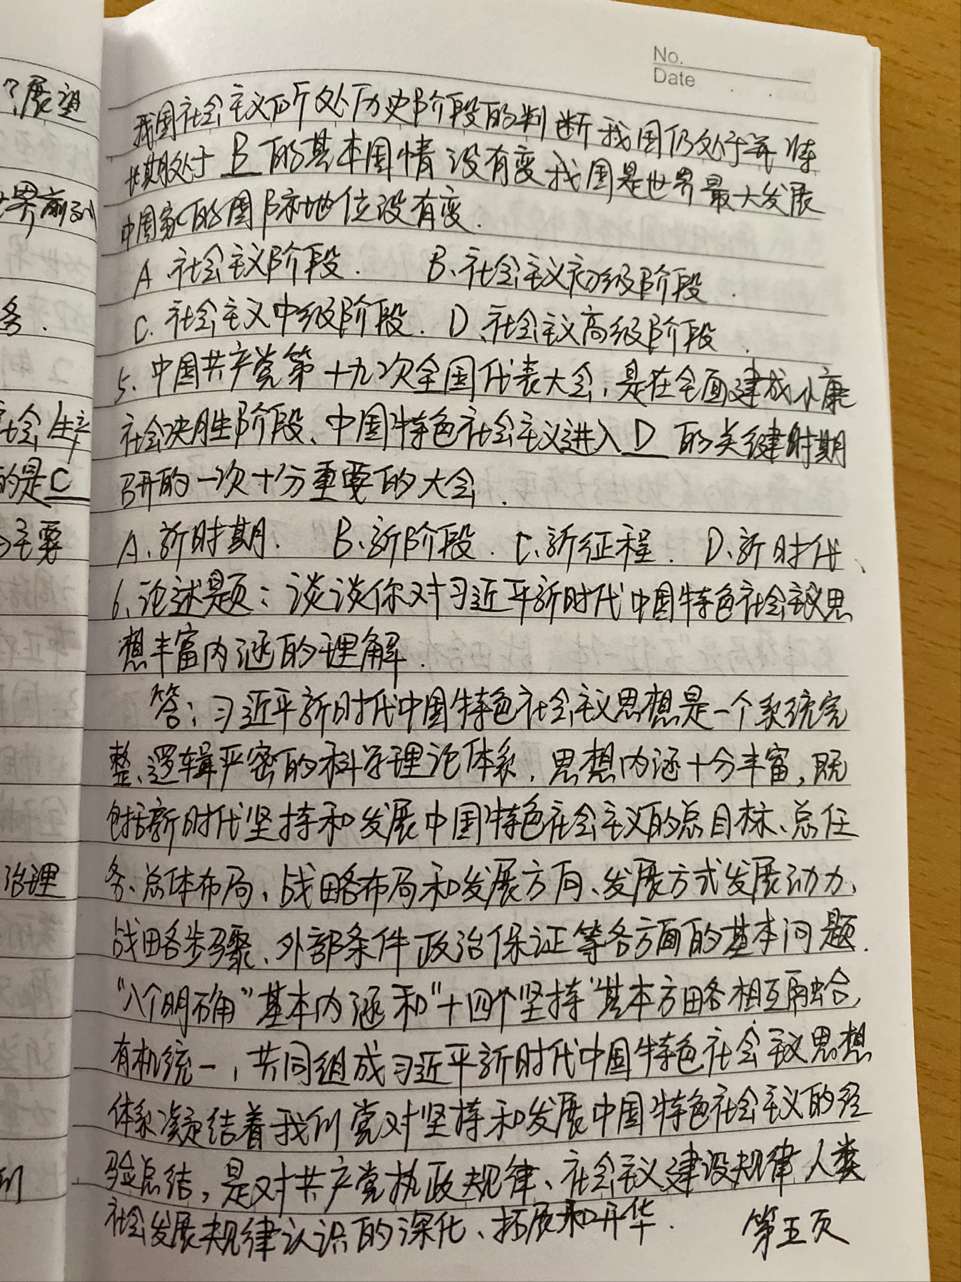 No.
Date
？展望
界前列
务.
社会生产
的是C
主要
治理
我国社会主义所处历史阶段的判断我国仍处于并将
长期处于 B 的基本国情没有变我国是世界最大发展
中国家的国际地位没有变.
A 社会主义阶段. B、社会主义初级阶段.
C. 社会主义中级阶段. D 社会主义高级阶段.
5、中国共产党第十九次全国代表大会,是在全面建成小康
社会决胜阶段、中国特色社会主义进入 D 的关键时期
召开的一次十分重要的大会.
A、新时期. B、新阶段. C、新征程. D、新时代、
6、论述题：谈谈你对习近平新时代中国特色社会主义思
想丰富内涵的理解.
答：习近平新时代中国特色社会主义思想是一个系统完
整、逻辑严密的科学理论体系,思想内涵十分丰富,既
包括新时代坚持和发展中国特色社会主义的总目标、总任
务、总体布局、战略布局和发展方向、发展方式发展动力、
战略步骤、外部条件政治保证等各方面的基本问题.
“八个明确”基本内涵和“十四个坚持”基本方略相互融合,
有机统一,共同组成习近平新时代中国特色社会主义思想
体系凝结着我们党对坚持和发展中国特色社会主义的经
验总结,是对共产党执政规律、社会主义建设规律人类
社会发展规律认识的深化、拓展和升华.
第五页